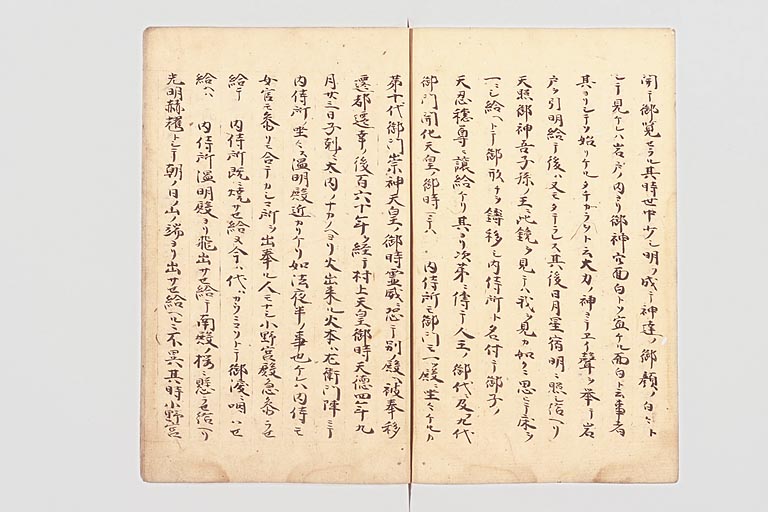 開テ御覧セラル其時世中少シ明ク成テ神達ノ御顔ノ白ミト
シテ見ケレハ岩戸ノ内ヨリ御神官面白トソ宣ケル面白ト云事者
其ヨリシテソ始リケルタチカラヲト云大力ノ神ミエイ聲ヲ挙テ岩
戸ヲ引明給テ後ハ又モタテラレス其後日月星宿明ニ照シ給ヘリ
天照御神吾子孫ノ王此鏡ヲ見テハ我ヲ見カ如クニ思シテ床ヲ
一ニシ給ヘトテ御形ヲ鋳移シ内侍所ト名付テ御子ノ
天忍穂尊ニ譲給ケリ其ヨリ次第ニ傳テ人王ノ御代及九代
御門開化天皇ノ御時ニテハ 内侍所モ御門モ一ツ殿ニ坐シケルカ
第十代御門崇神天皇ノ御時霊威ニ恐テ別ノ殿ヘ被奉移
遷都遷幸ノ後百六十年ヲ経テ村上天皇御時天徳四年九
月廿三日子剋ニ大内ノナカノヘヨリ火出来ル火本ハ左衛門陣ニテ
内侍所ノ坐シマス温明殿近カリケリ如法夜半ノ事也ケレハ内侍モ
女官モ参リモ合テカシコ所ヲ出奉ル人モナシ小野宮殿急参ラセ
給テ 内侍所既ニ焼サセ給ヌ今ハ代ハカウニコソトテ御涙ニ咽ハセ
給ハ 内侍所温明殿ヨリ飛出サセ給テ南殿ノ桜ニ懸ラセ給ヘリ
光明赫奕トシテ朝ノ日ノ山ノ端ヨリ出サセ給ヘルニ不異其時小野宮